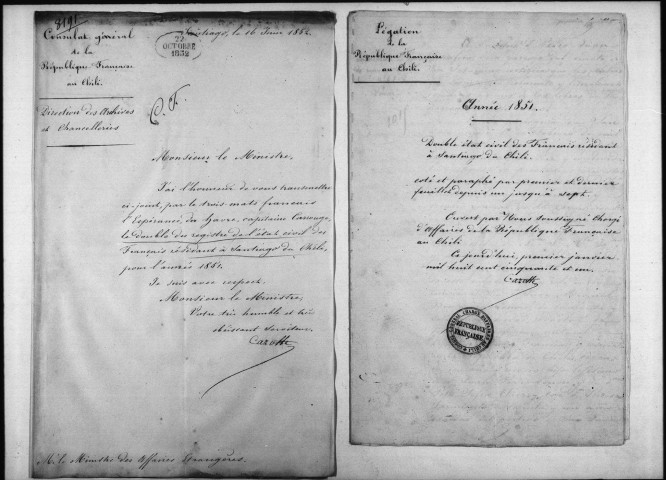 8191
Consulat général
de la
République Française
au Chili
Direction des Archives
et Chancelleries
Santiago, le 16 Juin 1852.
22
OCTOBRE
1852
C. F.
Monsieur le Ministre,
J'ai l'honneur de vous transmettre
ci-joint, par le trois mats français
l'Espérance, du Havre, capitaine
le double du registre de l'état civil des
Français résidant à Santiago du Chili,
pour l'année 1851.
Je suis avec respect,
Monsieur le Ministre,
Votre très humble et très
obéissant Serviteur,
Cazotte
M. le Ministre des Affaires Etrangères.
Légation
de la
République Française
au Chili.
Année 1851.
Double état civil des Français résidant
à Santiago du Chili.
coté et paraphé par premier et dernier
feuillet depuis un jusqu'à sept.
Ouvert par Nous soussigné Chargé
d'Affaires de la République Française
au Chili
Ce jourd'hui, premier janvier
mil huit cent cinquante et un.
Cazotte
RÉPUBLIQUE
FRANÇAISE